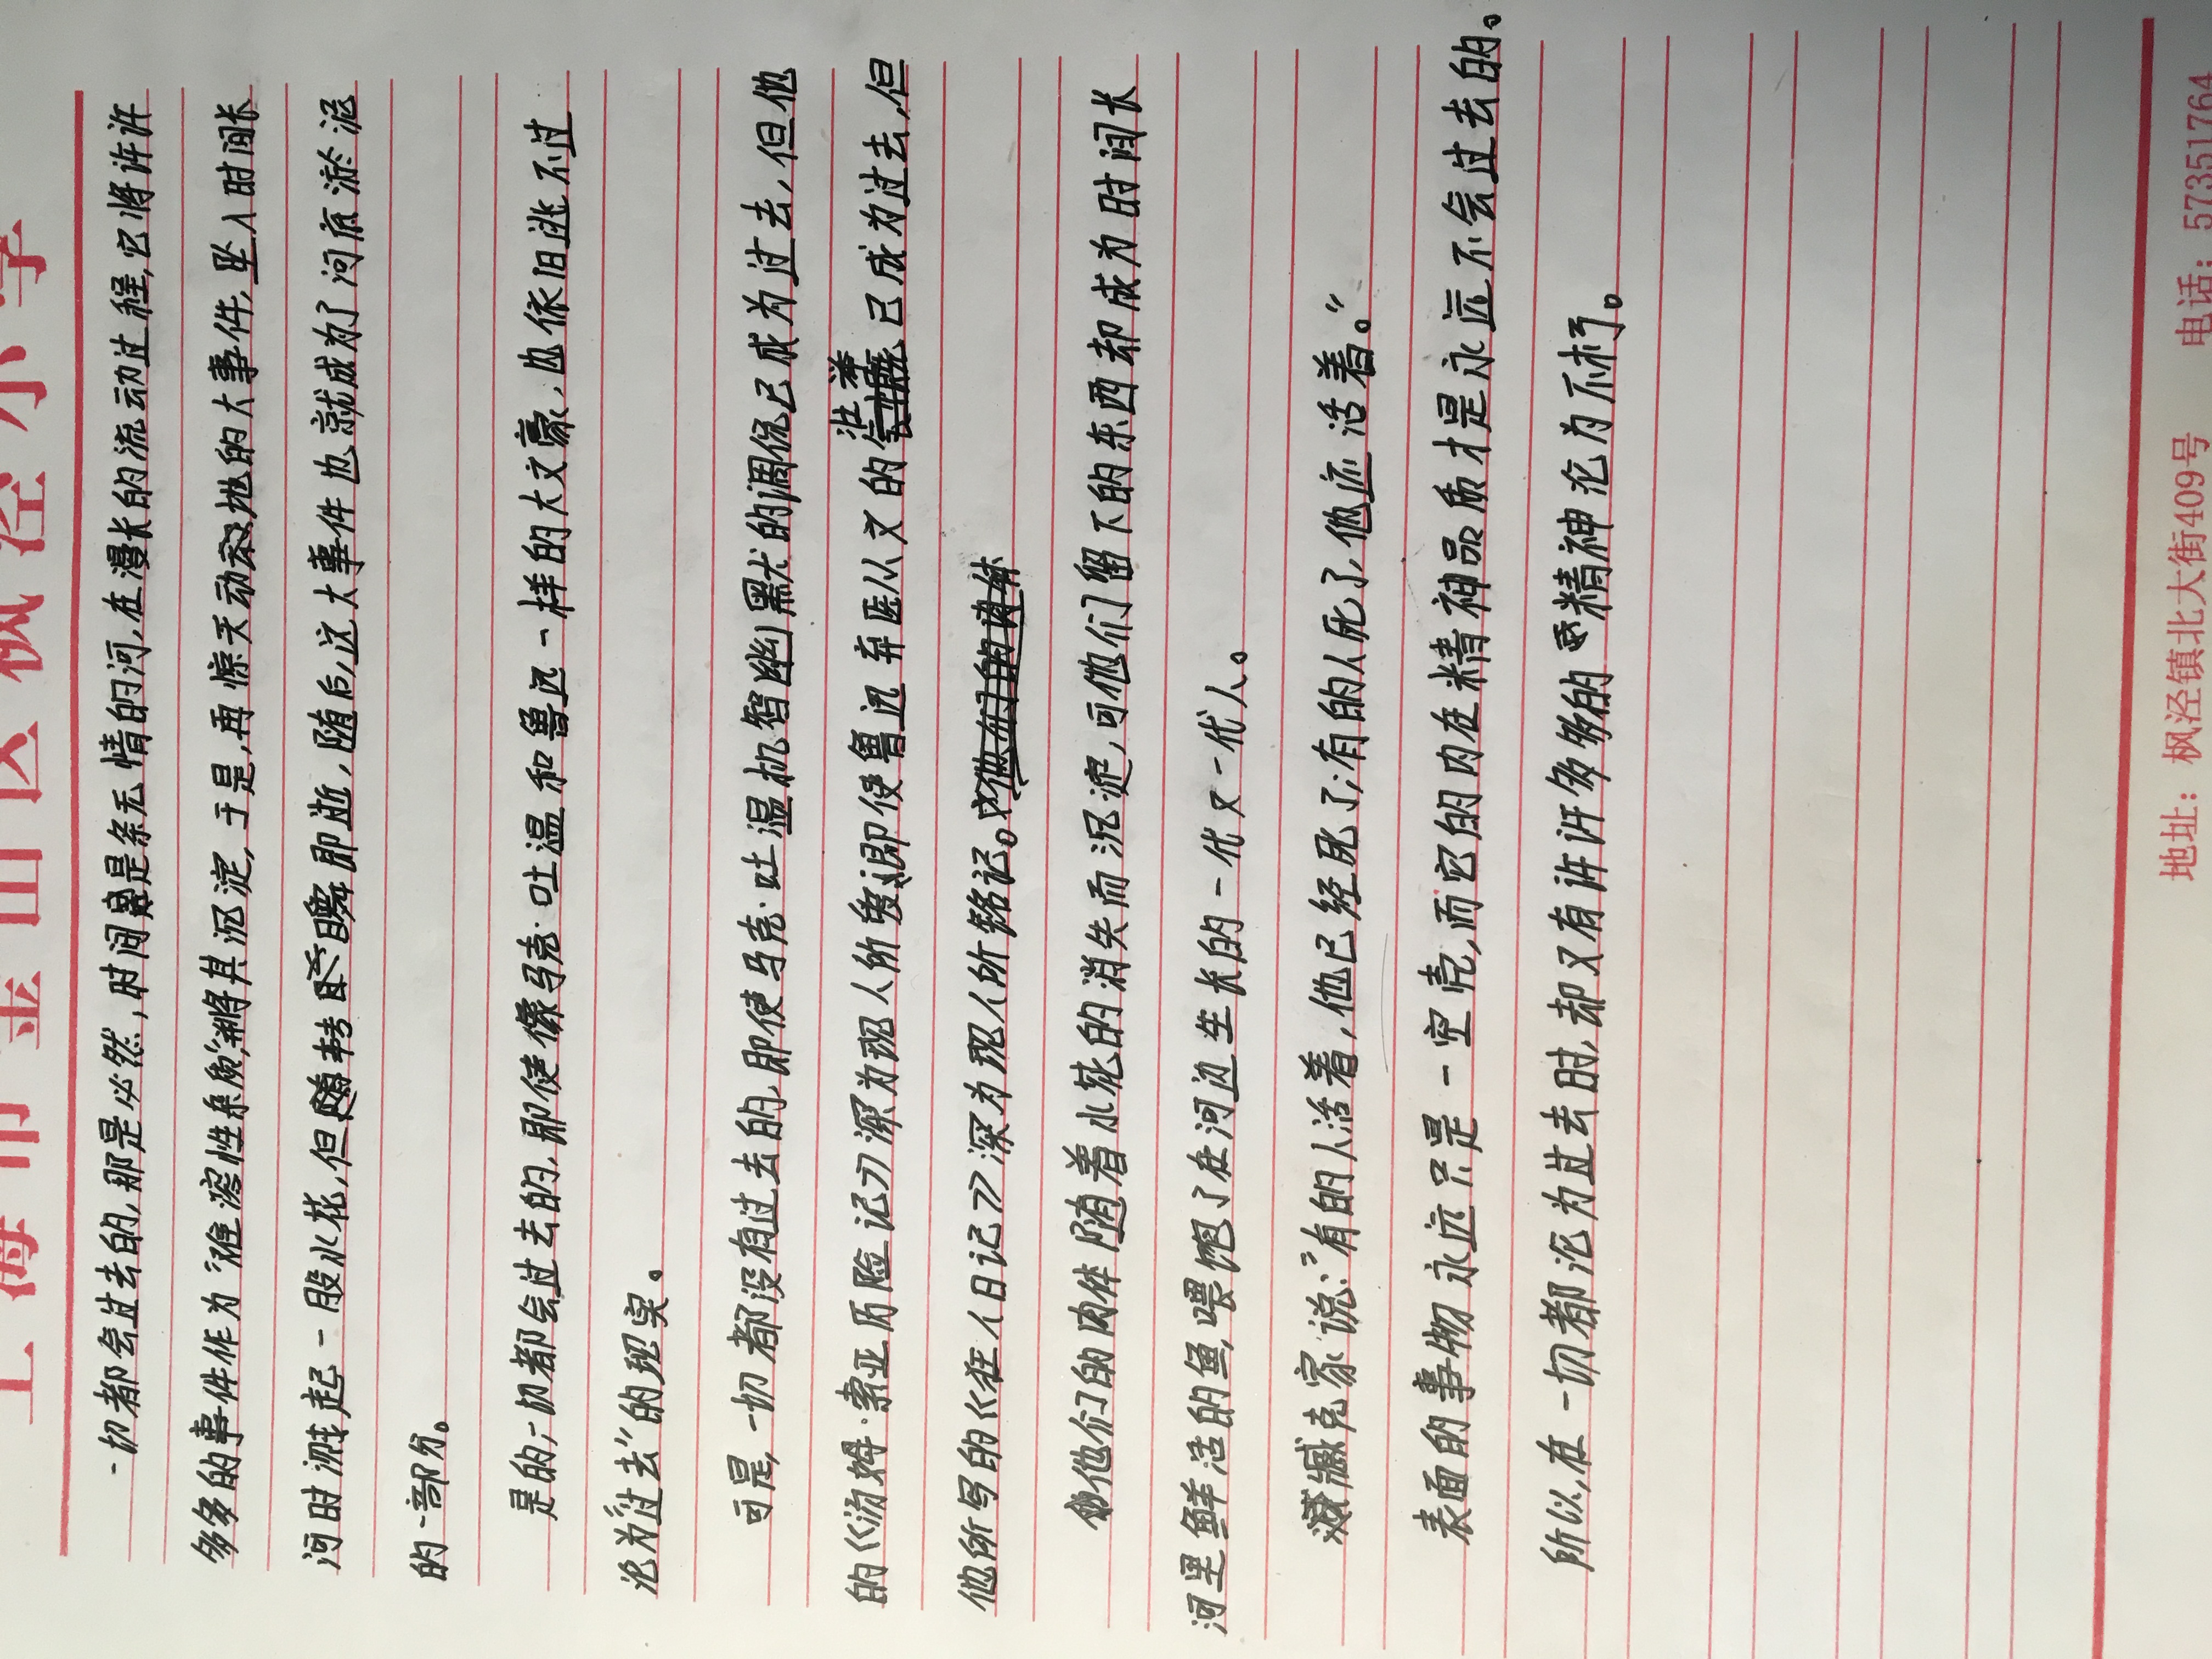 上海市金山区枫泾小学
一切都会过去的，那是必然，时间是条无情的河，在漫长的流动过程，它将许许
多多的事件作为“难溶性杂质”，将其沉淀，于是，再惊天动地的大事件，坠入时间长
河时溅起一股水花，但转瞬即逝，随后，这大事件也就成为了河底淤泥
的一部分。
是的，一切都会过去的，即使像马克·吐温和鲁迅一样的大文豪，也依旧逃不过
沦为“过去”的现实。
可是，一切都没有过去的，即使马克·吐温机智幽默犬的调侃已成为过去，但他
的《汤姆·索亚历险记》深为现人所爱，即使鲁迅弃医从文的壮举已成为过去，但
他所写的《狂人日记》深为现人所铭记。
他们的肉体随着水花的消失而沉淀，可他们留下的东西却成为时间长
河里鲜活的鱼，喂饱了在河边生长的一代又一代人。
臧克家说：“有的人活着，他已经死了；有的人死了，他还活着。”
表面的事物永远只是一空壳，而它的内在精神品质才是永远不会过去的。
所以，在一切都沦为过去时，却又有许许多多的精神沦为不朽。
地址：枫泾镇北大街409号 电话：57351764